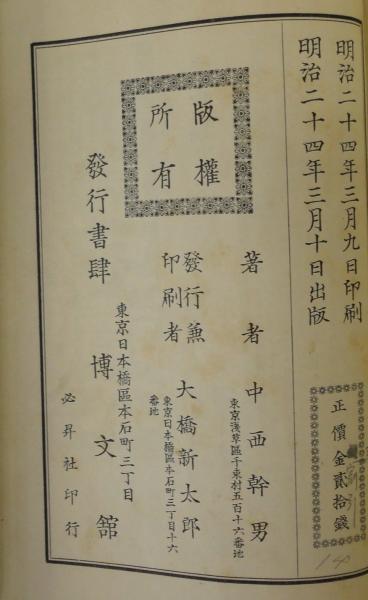 明治二十四年三月九日印刷
明治二十四年三月十日出版
正價金貳拾錢
版權
所有
著者 中西幹男
東京淺草區千束村五百十六番地
發行兼
印刷者 大橋新太郎
東京日本橋區本石町三丁目十六
番地
發行書肆
東京日本橋區本石町三丁目
博文舘
必昇社印行